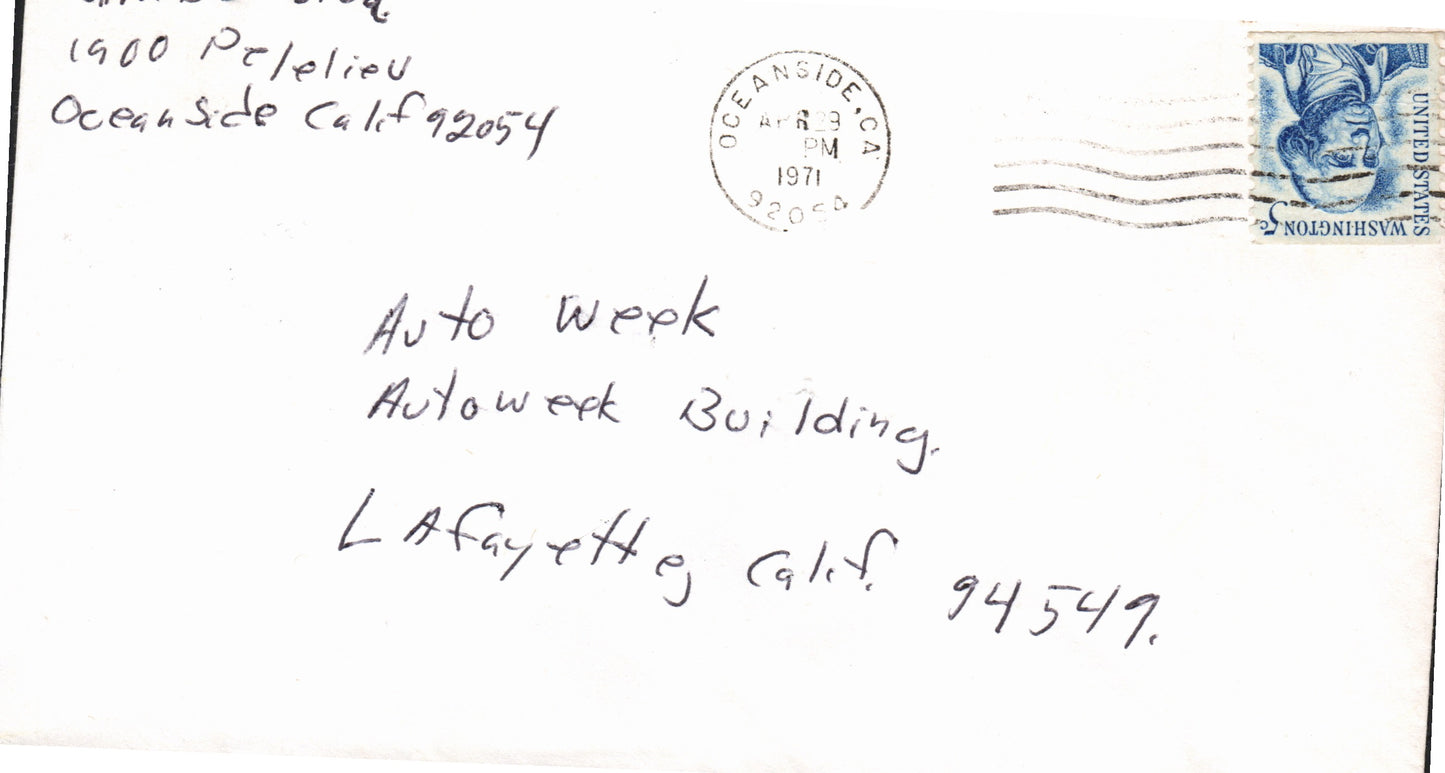 1900 Pelelieu
Oceanside Calif 92054
OCEANSIDE, CA
PM
1971
92054
UNITED STATES
WASHINGTON 5c
Auto Week
Autoweek Building.
LAfayette, Calif. 94549.